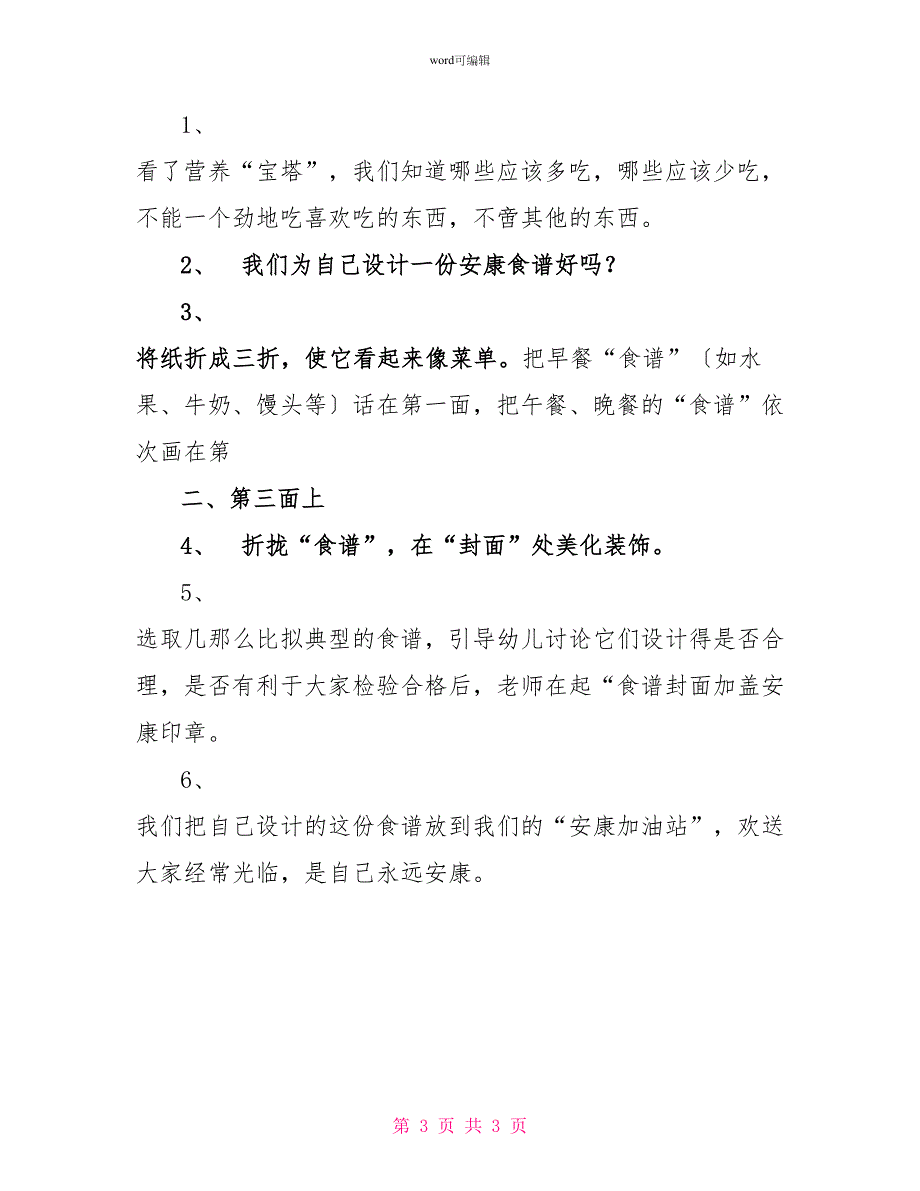 word可编辑
1、
看了营养“宝塔”，我们知道哪些应该多吃，哪些应该少吃，
不能一个劲地吃喜欢吃的东西，不啻其他的东西。
2、 我们为自己设计一份安康食谱好吗？
3、
将纸折成三折，使它看起来像菜单。把早餐“食谱”〔如水
果、牛奶、馒头等〕话在第一面，把午餐、晚餐的“食谱”依
次画在第
二、第三面上
4、 折拢“食谱”，在“封面”处美化装饰。
5、
选取几那么比拟典型的食谱，引导幼儿讨论它们设计得是否合
理，是否有利于大家检验合格后，老师在起“食谱封面加盖安
康印章。
6、
我们把自己设计的这份食谱放到我们的“安康加油站”，欢送
大家经常光临，是自己永远安康。
第 3 页 共 3 页